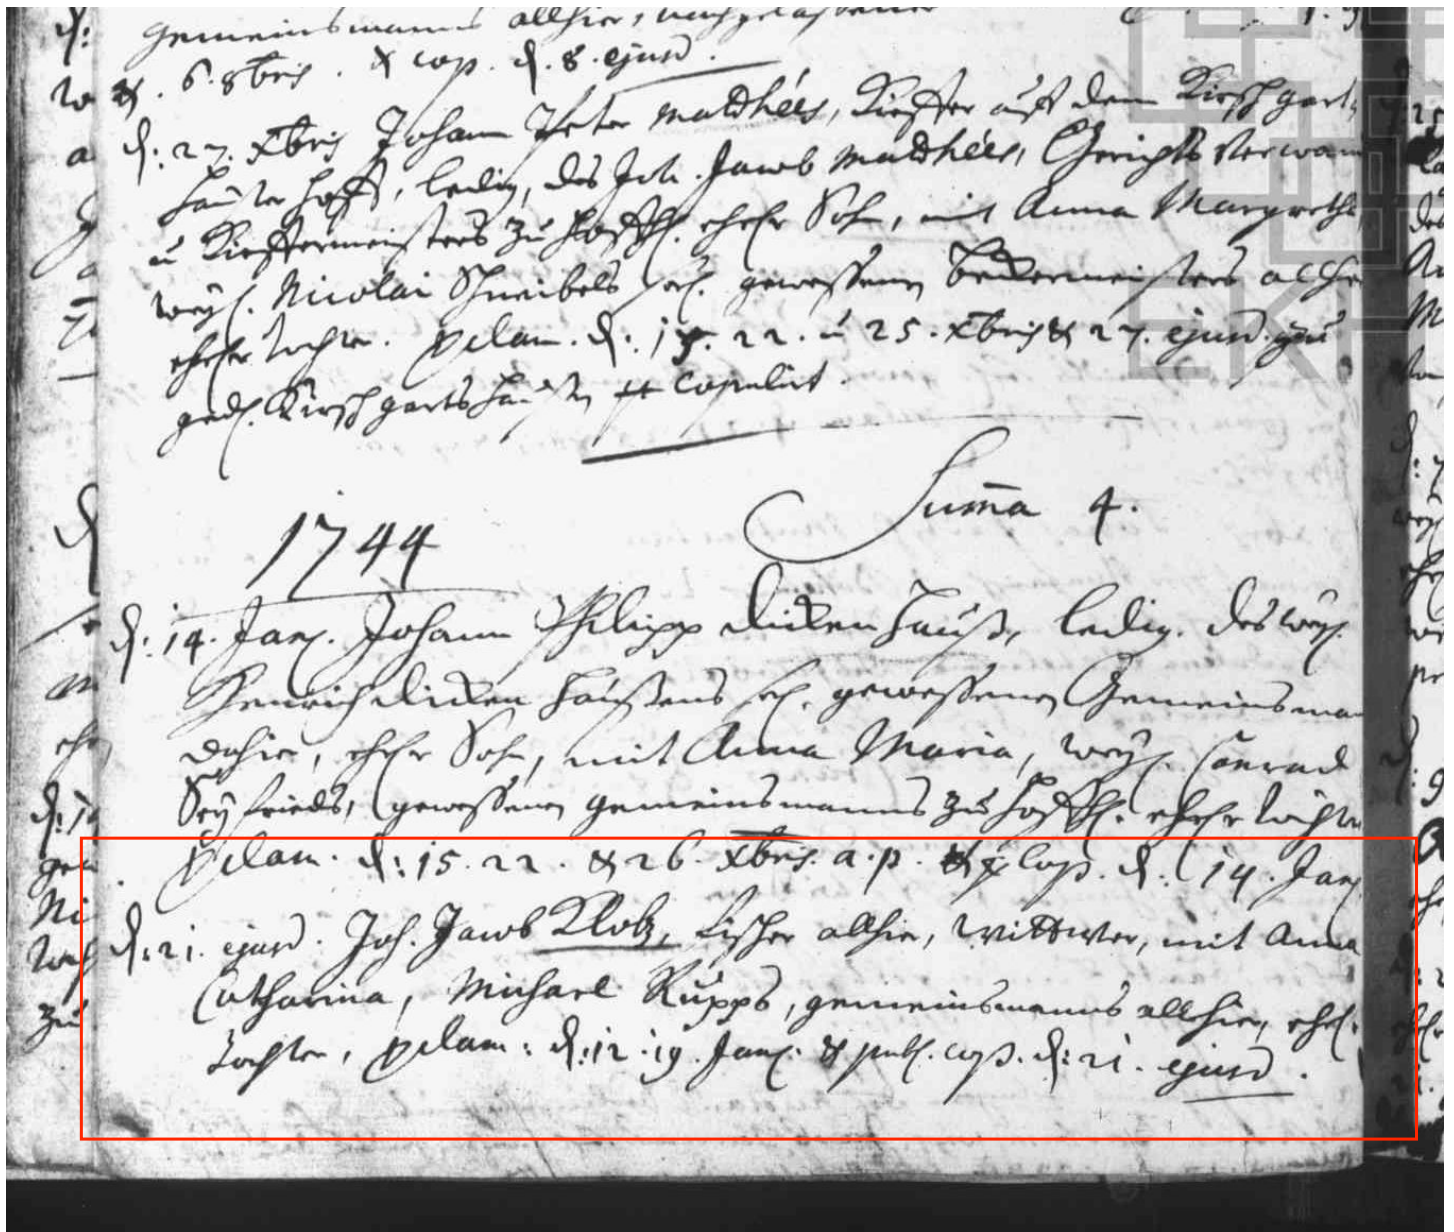 Gemeinsmanns allhier, nachgelaßener
& . 6. 8bris . & cop. d. 8. ejusd.
d: 27. Xbris Johann Peter Matthées, Kieffer auff dem Kirschgart,
häuser Hoff, ledig, des Jacob Matthées, Gerichts Verwan
u Kieffermeisters zu ehel. Sohn, mit Anna Margretha,
weyl. Nicolai Schneibels sel. gewesenen Beckermeisters allhie
ehel. Tochter. Proclam. d: 22. u 25. Xbris & 27. ejusd. zu
ged. Kirschgartshausen copulirt.
Summa 4.
1744
d: 14. Jan. Johann Philipp Dickenhauß, ledig. des weyl.
Henrich Dickenhaußens sel. gewesenen Gemeinsman
dahier, ehel. Sohn, mit Anna Maria, weyl. Conrad
Seyfrieds, gewesenen Gemeinsmanns zu ehel. Tochter
Proclam. d: 15. 22. & 26. Xbris. a. p. & cop. d. 14. Jan.
d: 21. ejusd. Joh. Jacob Klotz, Fischer allhier, Wittwer, mit Anna
Catharina, Michael Rupps, Gemeinsmanns allhier, ehel.
Tochter, Proclam: d: 12. 19. Jan. & publ. cop. d: 21. ejusd.